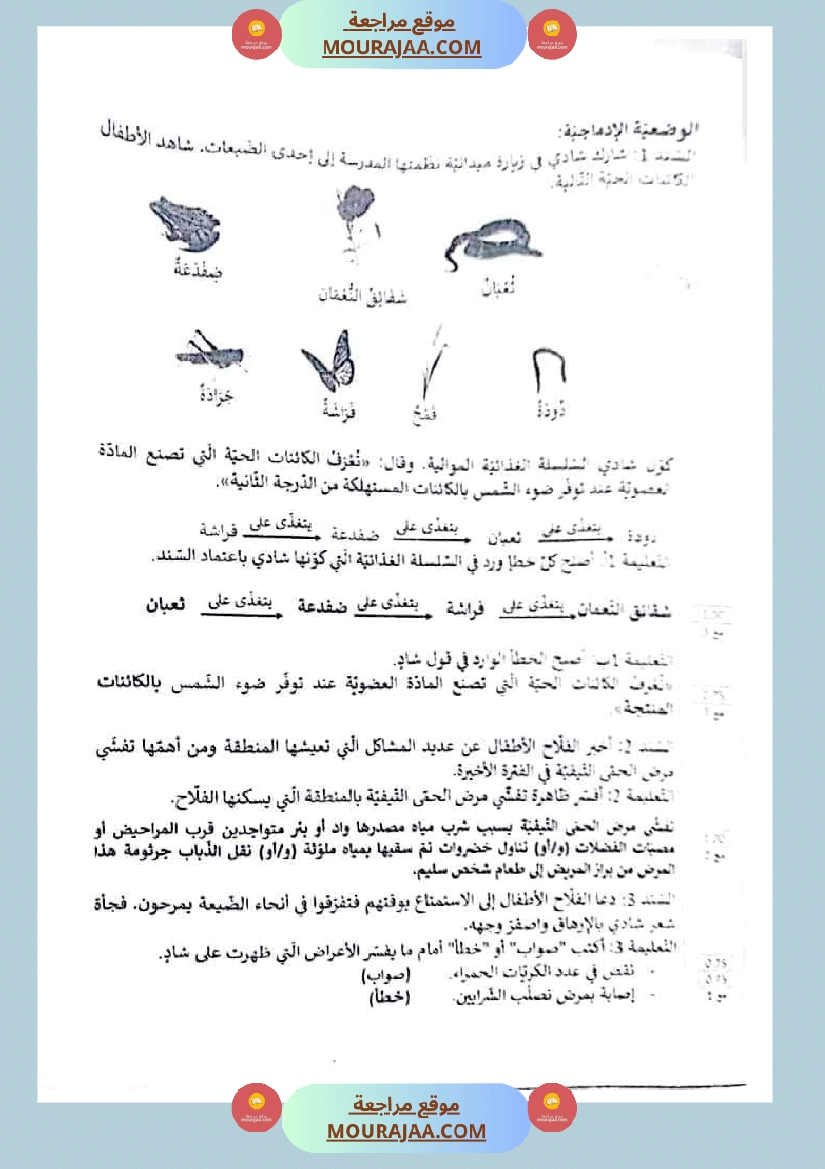 موقع مراجعة
MOURAJAA.COM
الوضعيّة الإدماجيّة:
السّند 1: شارك شادي في زيارة ميدانيّة نظّمتها المدرسة إلى إحدى الضّيعات. شاهد الأطفال
الكائنات الحيّة التّالية.
ضِفْدَعَةٌ
شَقَائِقُ النُّعْمَان
ثُعْبَانٌ
جَرَادَةٌ
فَرَاشَةٌ
قَمْحٌ
دُودَةٌ
كوّن شادي السّلسلة الغذائيّة الموالية. وقال: «نُعَرّفُ الكائنات الحيّة الّتي تصنع المادّة
العضويّة عند توفّر ضوء الشّمس بالكائنات المستهلكة من الدّرجة الثّانية».
دودة يتغذّى على ثعبان يتغذّى على ضفدعة يتغذّى على فراشة
التّعليمة 1أ: أصلح كلّ خطإ ورد في السّلسلة الغذائيّة الّتي كوّنها شادي باعتماد السّند.
شقائق النّعمان يتغذّى على فراشة يتغذّى على ضفدعة يتغذّى على ثعبان
التّعليمة 1ب: أصلح الخطأ الوارد في قول شادٍ.
«نُعرّف الكائنات الحيّة الّتي تصنع المادّة العضويّة عند توفّر ضوء الشّمس بالكائنات
المنتجة».
السّند 2: أخبر الفلّاح الأطفال عن عديد المشاكل الّتي تعيشها المنطقة ومن أهمّها تفشّي
مرض الحمّى التّيفيّة في الفترة الأخيرة.
التّعليمة 2: أفسّر ظاهرة تفشّي مرض الحمّى التّيفيّة بالمنطقة الّتي يسكنها الفلّاح.
تفشّي مرض الحمّى التّيفيّة بسبب شرب مياه مصدرها واد أو بئر متواجدين قرب المراحيض أو
مصبّات الفضلات (و/أو) تناول خضروات تمّ سقيها بمياه ملوّثة (و/أو) نقل الذّباب جرثومة هذا
المرض من براز المريض إلى طعام شخص سليم.
السّند 3: دعا الفلّاح الأطفال إلى الاستمتاع بوقتهم فتفرّقوا في أنحاء الضّيعة يمرحون. فجأة
شعر شادي بالإرهاق واصفرّ وجهه.
التّعليمة 3: أكتب "صواب" أو "خطأ" أمام ما يفسّر الأعراض الّتي ظهرت على شادٍ.
- نقص في عدد الكريّات الحمراء. (صواب)
- إصابة بمرض تصلّب الشّرايين. (خطأ)
0.75
موقع مراجعة
MOURAJAA.COM